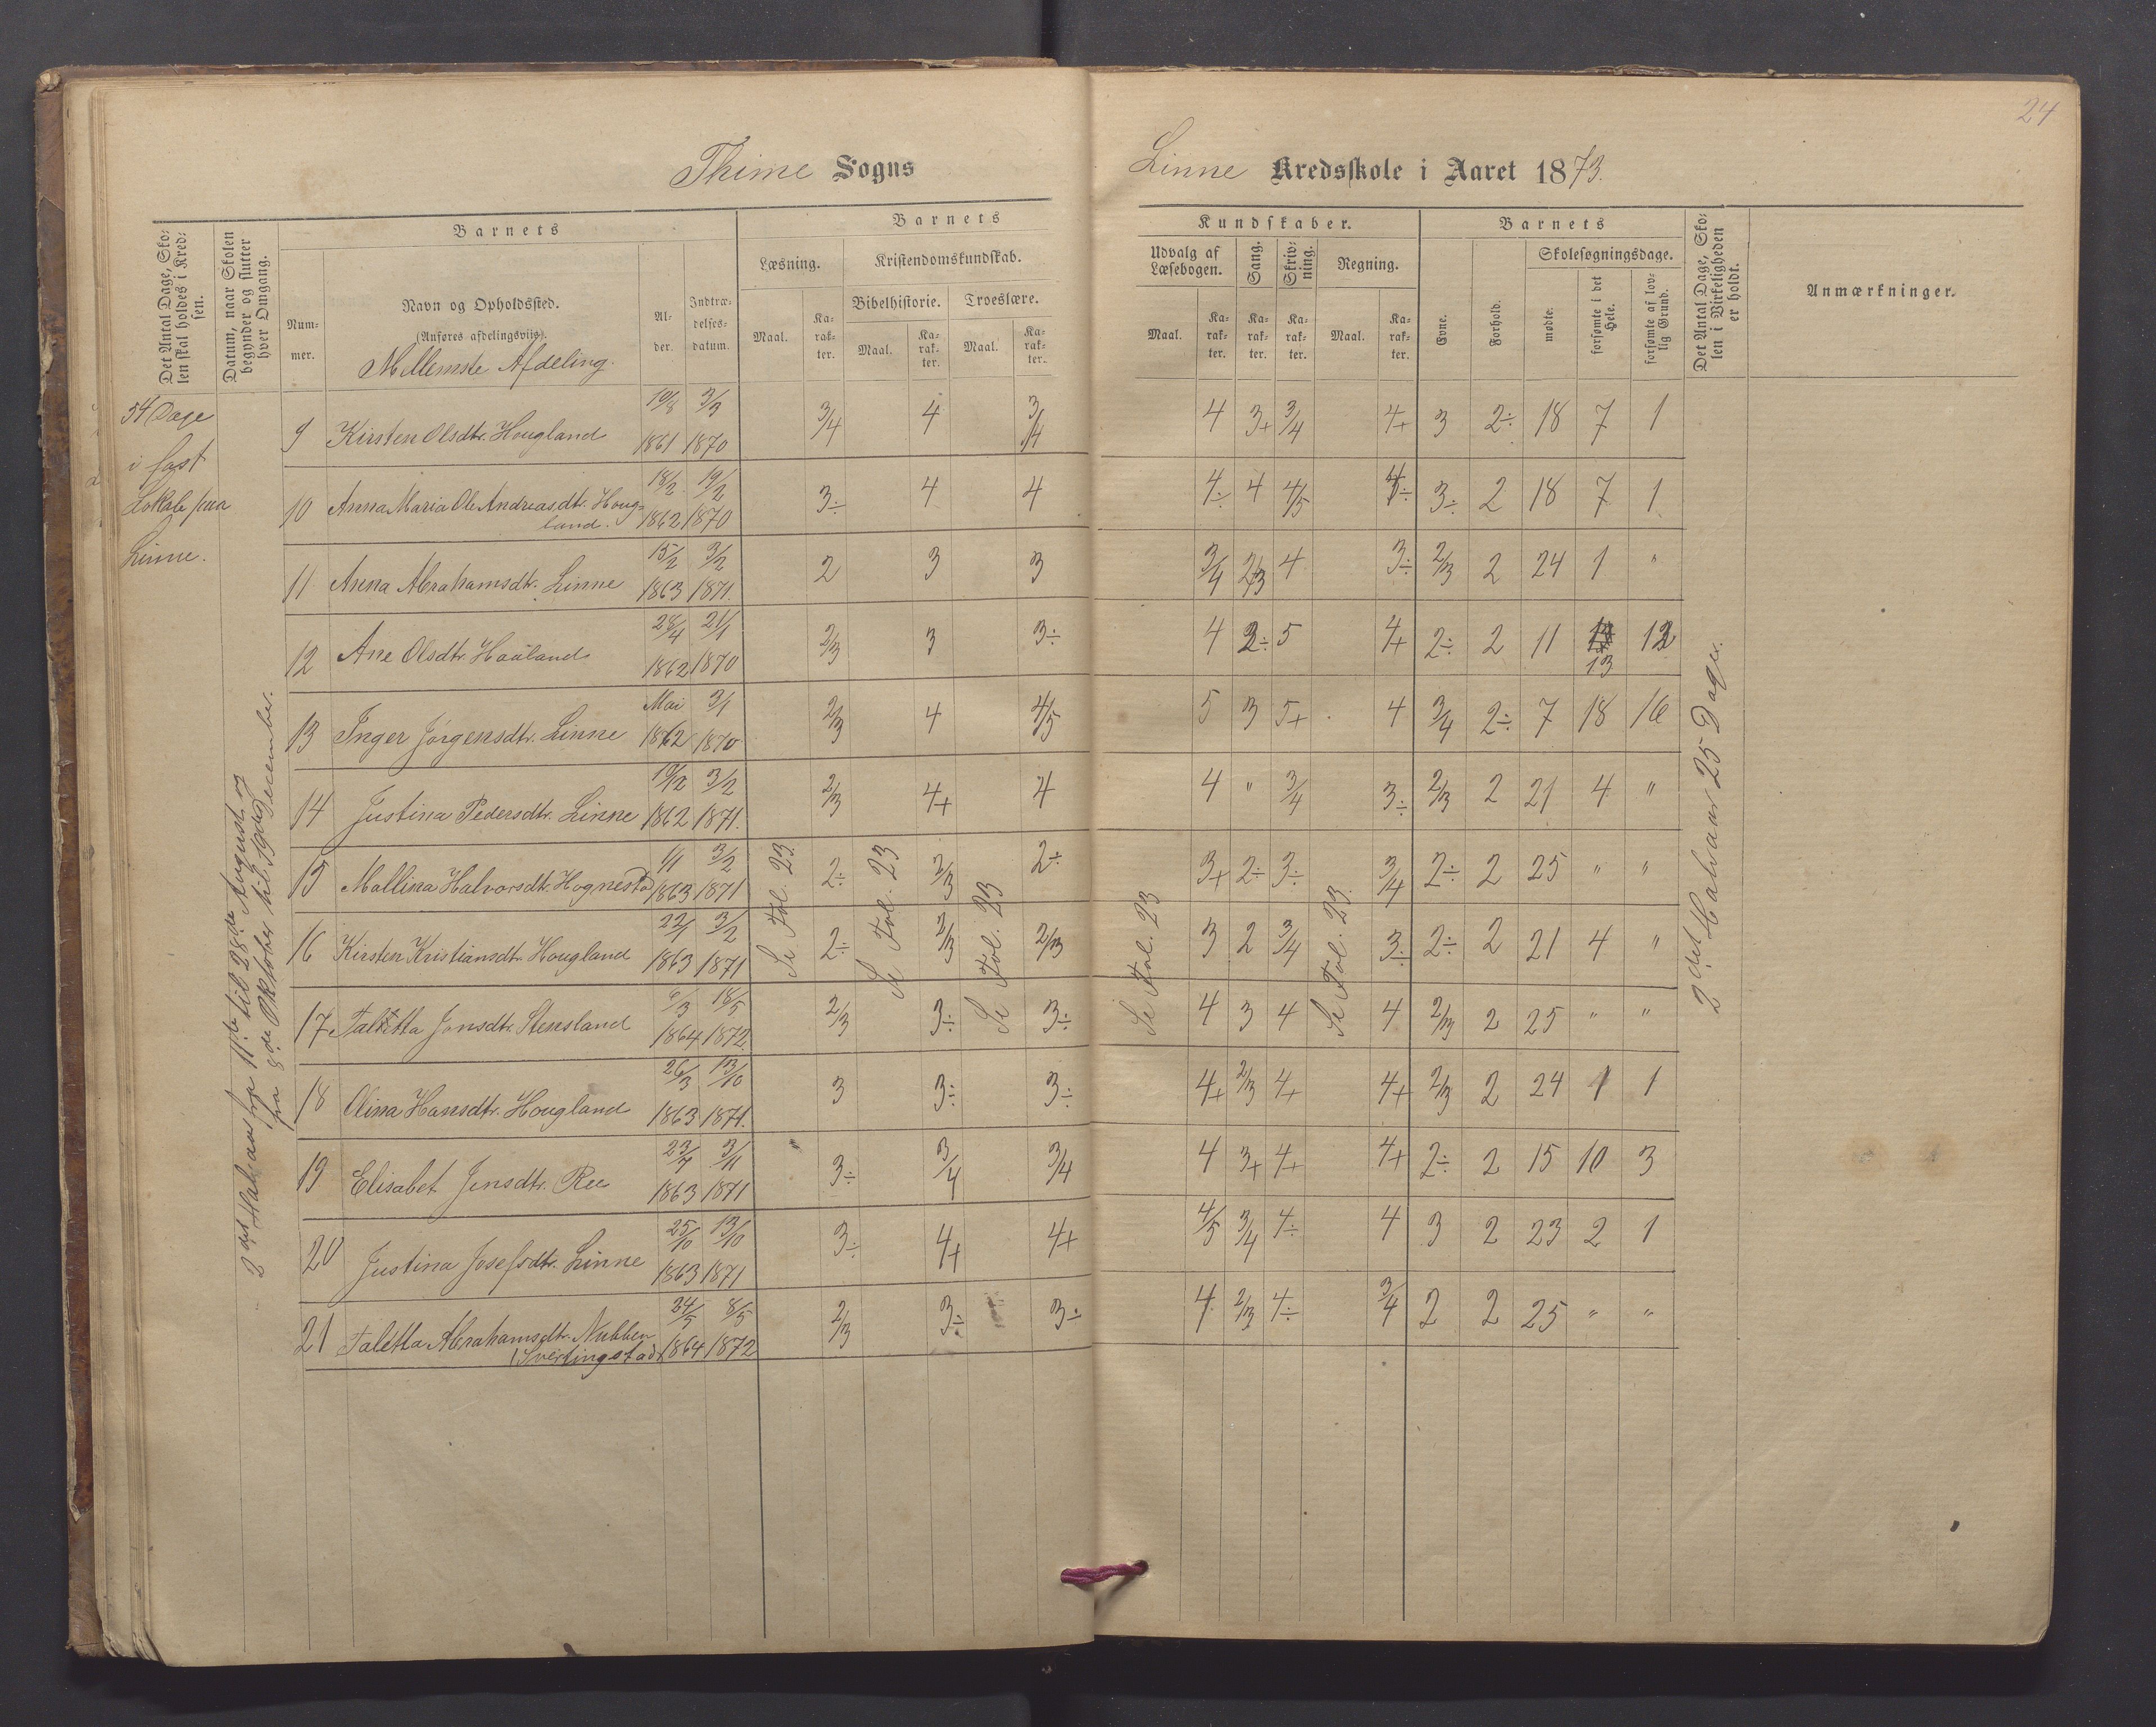 24
Thime Sogns
Linne Kredsskole i Aaret 1873.
Det Antal Dage, Skolen skal holdes i Kredsen.
Datum, naar Skolen begynder og slutter hver Omgang.
Barnets
Nummer.
Navn og Opholdssted.
(Anføres afdelingsviis).
Mellemste Afdeling.
Alder.
Indtrædelsesdatum.
Barnets
Læsning.
Kristendomskundskab.
Bibelhistorie.
Troeslære.
Maal.
Karakter.
Maal.
Karakter.
Maal.
Karakter.
Kundskaber.
Udvalg af Læsebogen.
Sang.
Skrivning.
Regning.
Maal.
Karakter.
Karakter.
Karakter.
Maal.
Karakter.
Barnets
Evne.
Forhold.
Skolesøgningsdage.
mødte.
forsømte i det Hele.
forsømte af lovlig Grund.
Det Antal Dage, Skolen i Virkeligheden er holdt.
Anmærkninger.
54 Dage
i fast
Lokale paa
Linne.
2det Halvaar fra 11te til 28de August og
fra 8de Oktober til 19de December.
9 Kirsten Olsdtr. Hougland 10/8 1861 3/3 1870 3/4 4 3/4 4 3+ 3/4 4+ 3 2÷ 18 7 1
10 Anna Maria Ole Andreasdtr. Hougland. 18/2 1862 19/2 1870 3÷ 4 4 4÷ 4 4/5 4÷ 3÷ 2 18 7 1
11 Anna Abrahamsdtr. Linne 15/2 1863 3/2 1871. 2 3 3 3/4 2/3 4 3÷ 2/3 2 24 1 "
12 Ane Olsdtr. Haaland 28/4 1862 21/1 1870 2/3 3 3÷ 4 2÷ 5 4+ 2÷ 2 11 13 12
13 Inger Jørgensdtr. Linne Mai 1862 3/1 1870 2/3 4 4/5 5 3 5+ 4 3/4 2÷ 7 18 16
14 Justina Pedersdtr. Linne 19/12 1862 3/2 1871. 2/3 4+ 4 4 " 3/4 3÷ 2/3 2 21 4 "
15 Mallina Halvorsdtr. Hognestad 1/1 1863 3/2 1871 2÷ 2/3 2÷ 3+ 2÷ 3÷ 3/4 2÷ 2 25 " "
16 Kirsten Kristiansdtr. Hougland 22/1 1863 3/2 1871 2÷ 2/3 2/3 3 2 3/4 3÷ 2÷ 2 21 4 "
17 Taletta Jonsdtr. Stensland 6/3 1864 18/5 1872. 2/3 3÷ 3÷ 4 3 4 4 2/3 2 25 " "
18 Olina Hansdtr. Hougland 26/3 1863 13/10 1871. 3 3÷ 3÷ 4+ 2/3 4+ 4+ 2/3 2 24 1 1
19 Elisabet Jensdtr. Ree 23/7 1863 3/11 1871 3÷ 3/4 3/4 4 3+ 4+ 4+ 2÷ 2 15 10 3
20 Justina Josefsdtr. Linne 25/10 1863 13/10 1871 3÷ 4+ 4+ 4/5 3/4 4÷ 4 3 2 23 2 1
21 Taletta Abrahamsdtr. Nubben (Svertingstad) 24/5 1864 8/5 1872 2/3 3÷ 3÷ 4 2/3 4÷ 3/4 2 2 25 " "
Se Fol. 23.
Se Fol. 23
Se Fol. 23
Se Fol. 23
Se Fol. 23.
2det Halvaar 25 Dage.